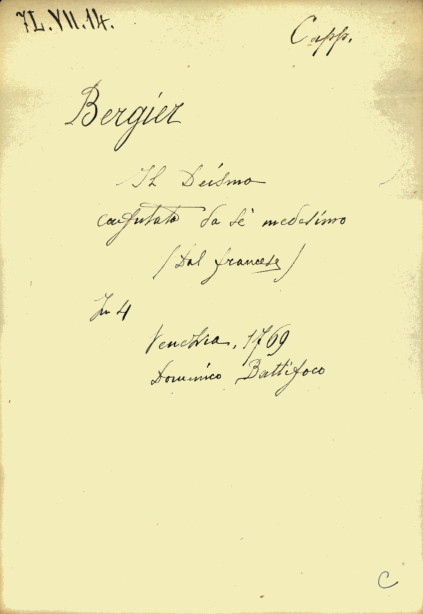 71.VII.14.
Capp.
Bergier
Il Deismo
confutato da sè medesimo
(Dal francese)
In 4
Venezia, 1769
Domenico Battifoco
C